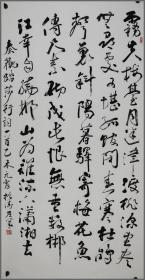 霧失樓台月迷津渡桃源望斷
無尋處可堪孤館閉春寒杜鵑
聲裏斜陽暮驛寄梅花魚
傳尺素砌成此恨無重數郴
江幸自繞郴山為誰流下瀟湘去
秦觀踏莎行詞一首